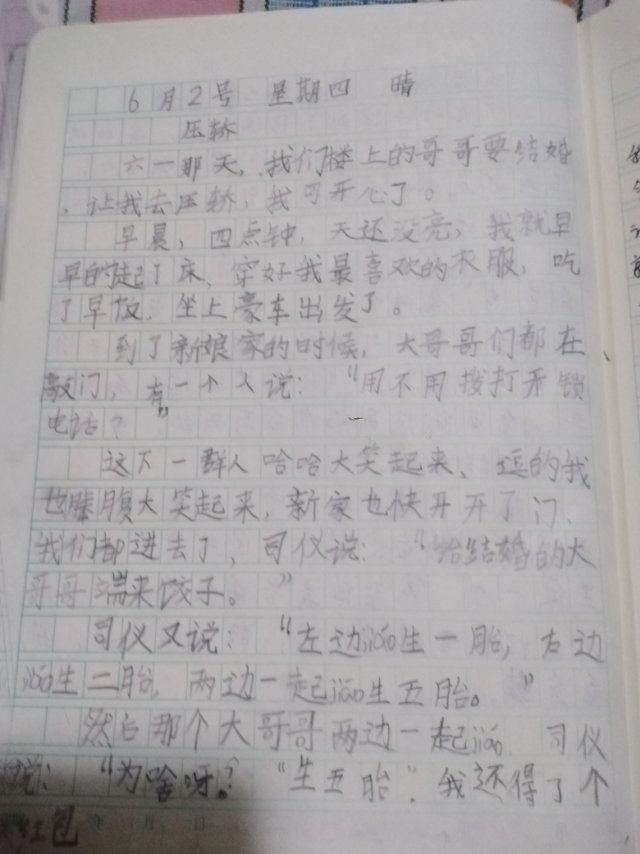 6月2号 星期四 晴
压轿
六一那天,我们楼上的哥哥要结婚
,让我去压轿,我可开心了。
早晨,四点钟,天还没亮,我就早
早的起了床、穿好我最喜欢的衣服,吃
了早饭.坐上豪车出发了。
到了新娘家的时候,大哥哥们都在
敲门,有一个人说:“用不用拨打开锁
电话?”
这下一群人哈哈大笑起来、逗的我
也捧腹大笑起来,新家也快开开了门、
我们都进去了,司仪说:“给结婚的大
哥哥端来饺子。”
司仪又说:“左边涵生一胎,右边
涵生二胎,两边一起涵生五胎。”
然后那个大哥哥两边一起涵 司仪
说:“为啥呀?“生五胎”.我还得了个
红包
年 月 日